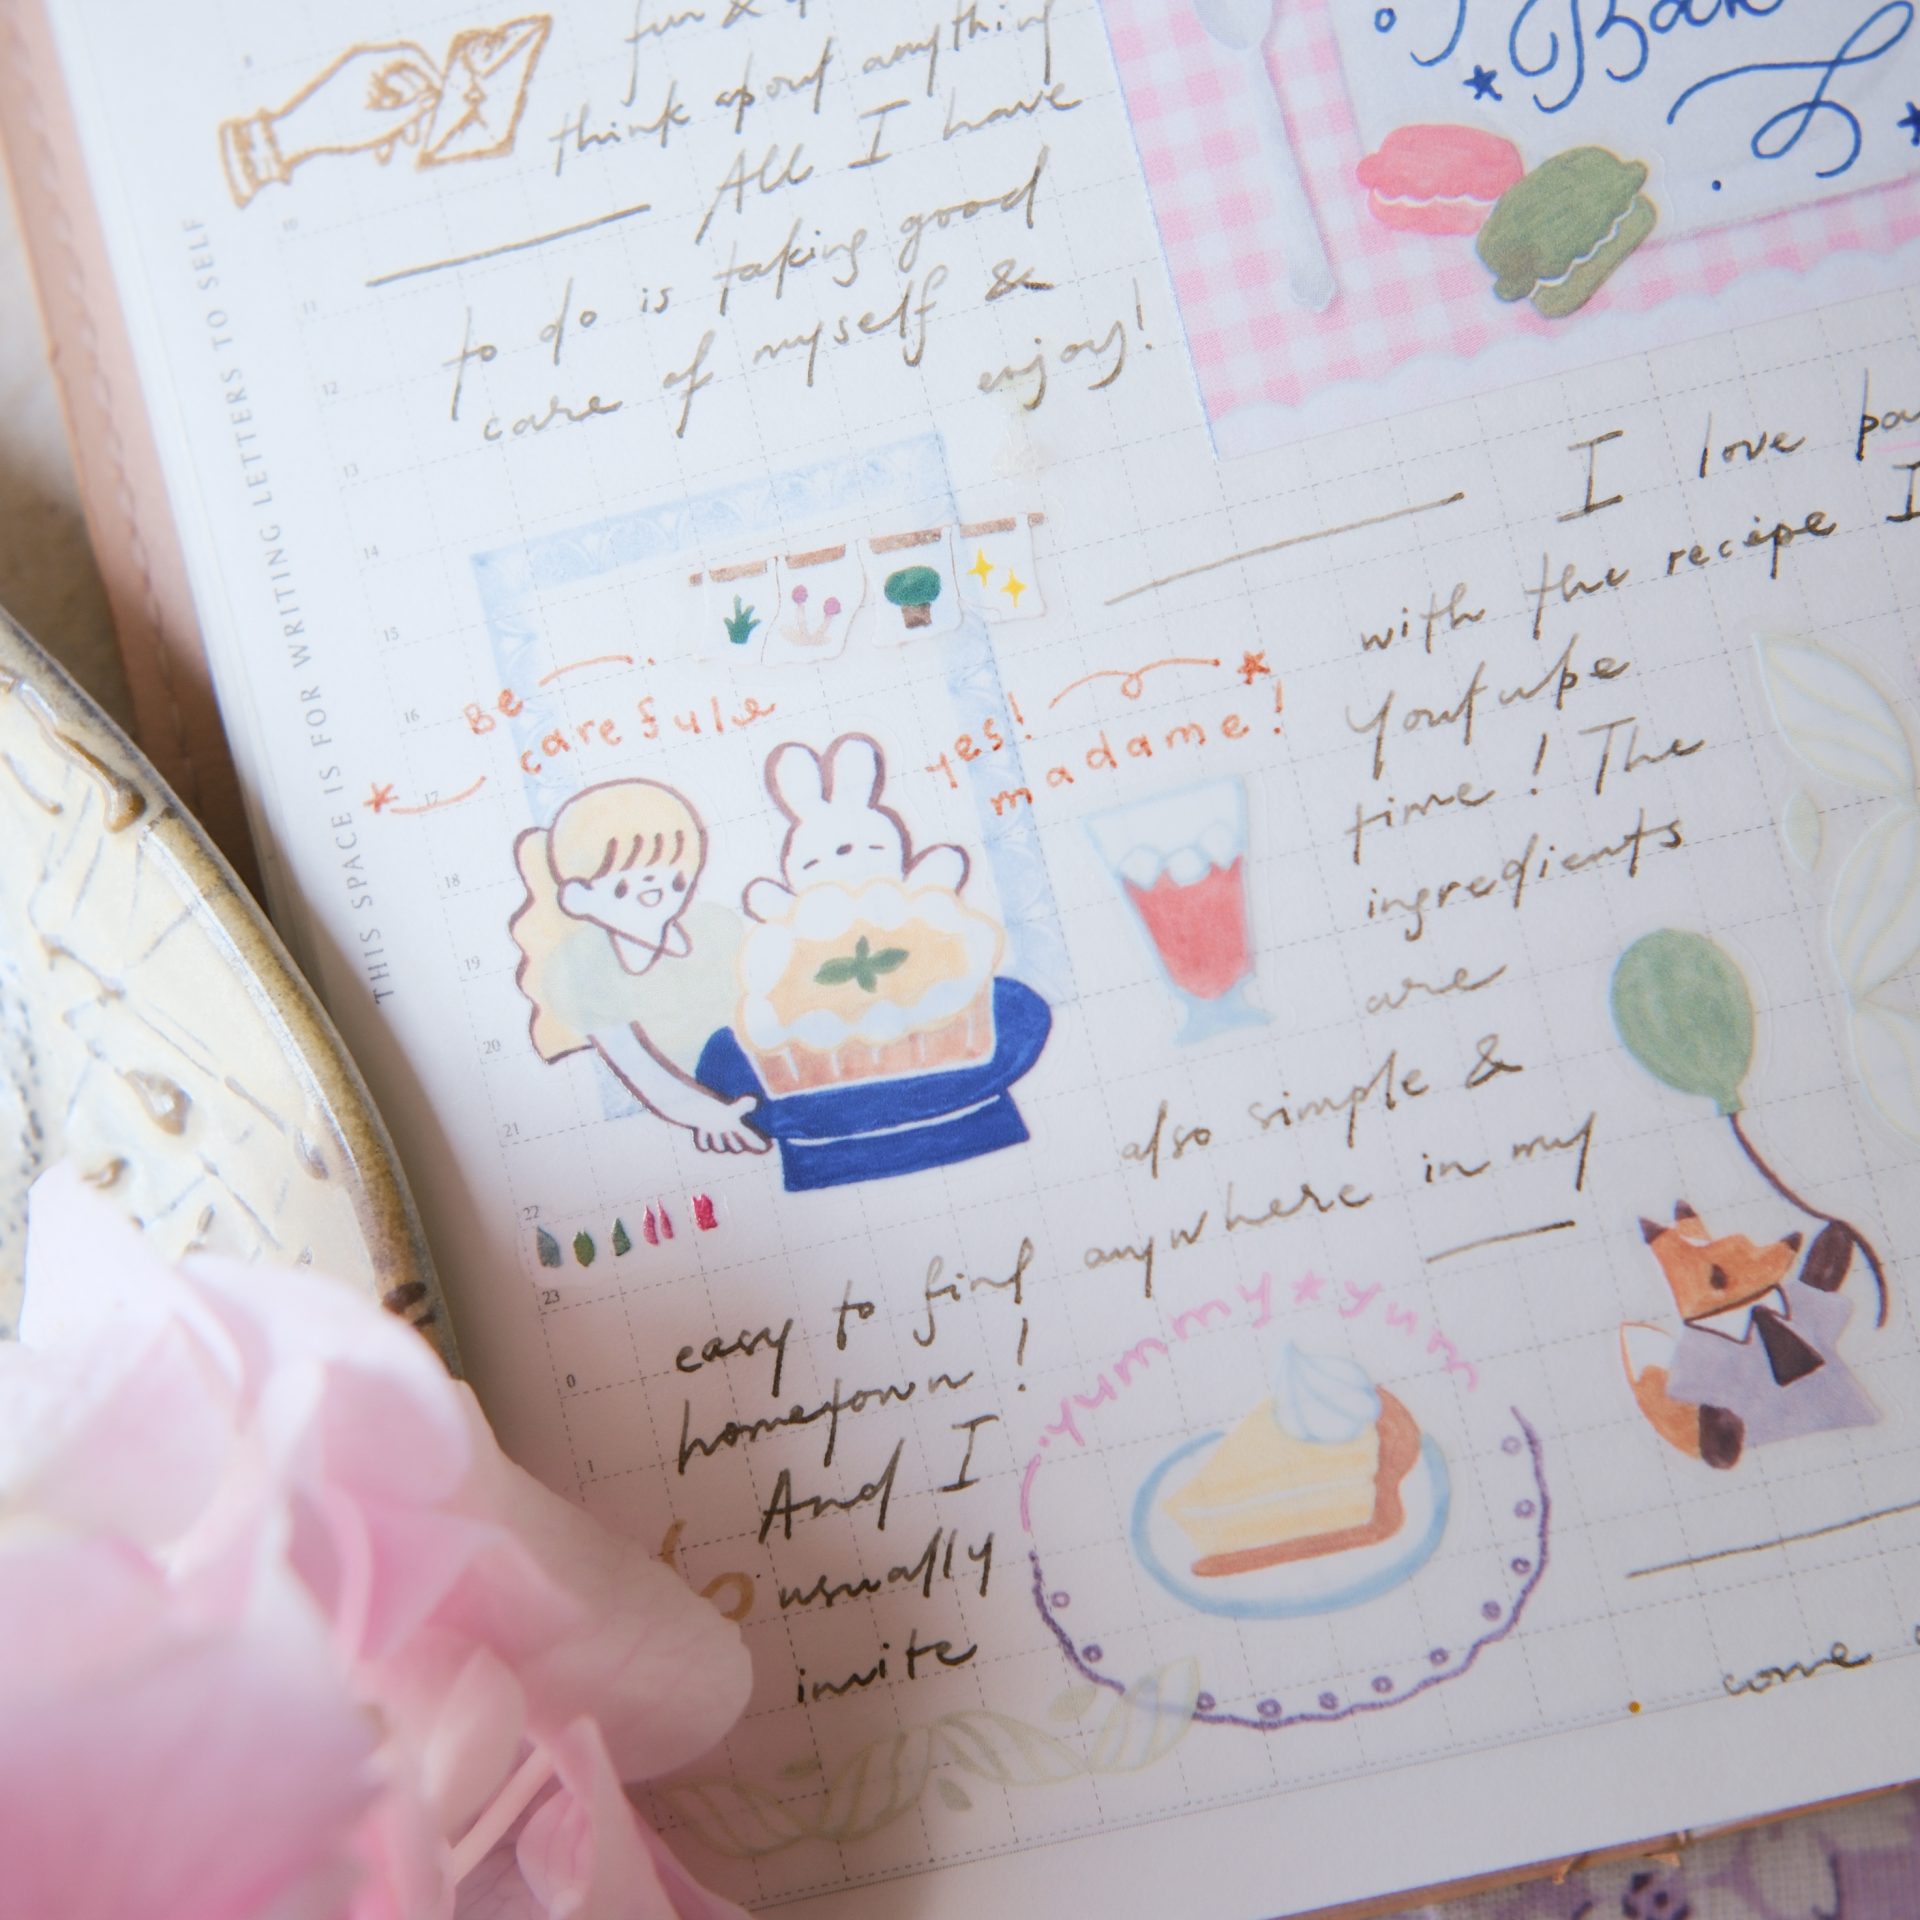 fun &
think about anything
All I have
to do is taking good
care of myself &
enjoy!
Bak
I love
with the recipe I
Youtube
time! The
ingredients
are
also simple &
easy to find anywhere in my
hometown!
And I
usually
invite
come
Be
carefule
yes!
madame!
yummy★yum
THIS SPACE IS FOR WRITING LETTERS TO SELF
9
10
11
12
13
14
15
16
17
18
19
20
21
22
23
0
1